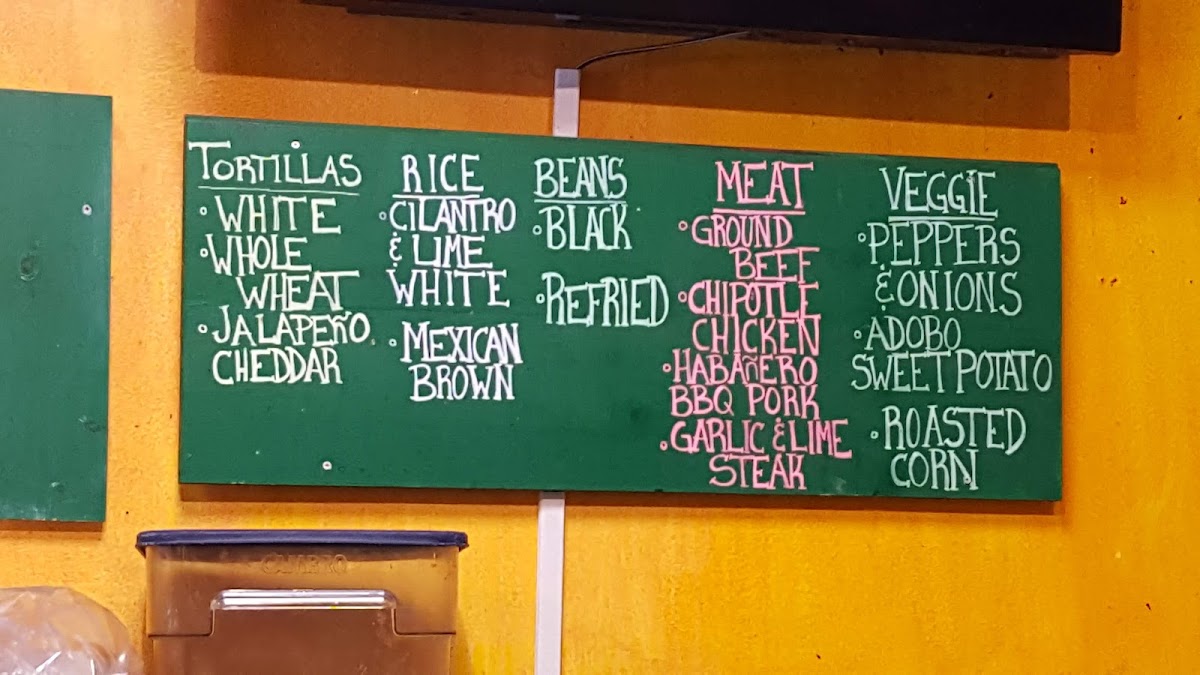 TORTILLAS
• WHITE
• WHOLE
WHEAT
• JALAPEÑO
CHEDDAR
RICE
• CILANTRO
& LIME
WHITE
• MEXICAN
BROWN
BEANS
• BLACK
• REFRIED
MEAT
• GROUND
BEEF
• CHIPOTLE
CHICKEN
• HABAÑERO
BBQ PORK
• GARLIC & LIME
STEAK
VEGGIE
• PEPPERS
& ONIONS
• ADOBO
SWEET POTATO
• ROASTED
CORN
CAMBRO